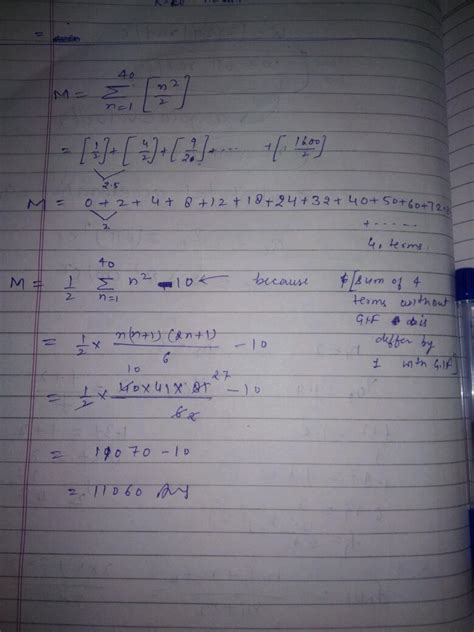 M = 40 Σ n=1 [n²/2]
= [1/2] + [4/2] + [9/2] + .... + [1600/2]
2.5
M = 0 + 2 + 4 + 8 + 12 + 18 + 24 + 32 + 40 + 50 + 60 + 72
2
+ ......
40 terms.
M = 1/2 40 Σ n=1 n² - 10 ← because [sum of 4
terms without
GIF is
differ by
1 with G.I.F]
= 1/2 × n(n+1)(2n+1)/6 - 10
10 27
= 1/2 × 40×41×81/6 2 - 10
= 11070 - 10
= 11060 Ans